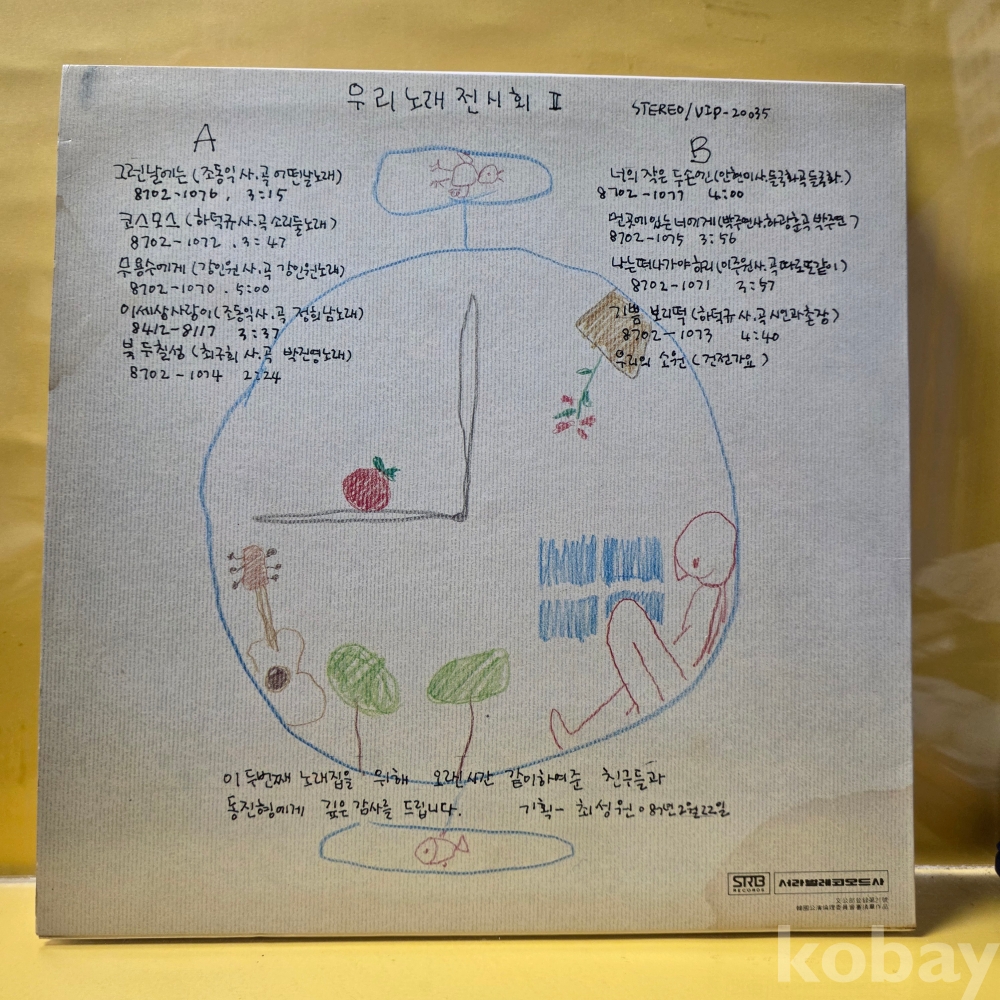 우리노래전시회 II
STEREO/VIP-20035
A
그런날에는 (조동익 사.곡 어떤날노래)
8702-1076, 3:15
코스모스 (하덕규 사.곡 소리둘노래)
8702-1072, 3:47
무용수에게 (강인원 사.곡 강인원노래)
8702-1070. 5:00
이세상사랑이 (조동익 사.곡 정희남노래)
8412-8117 3:37
북두칠성 (최구희 사.곡 박진영노래)
8702-1074 2:24
B
너의 작은 두손엔 (안현이사, 들국화곡 들국화.)
8702-1077 4:00
먼곳에 있는 너에게 (박주연사, 하광훈곡 박주연)
8702-1075 3:56
나는 떠나가야하리 (이주원 사.곡 따로또같이)
8702-1071 3:57
기쁨 보리떡 (하덕규 사.곡 시인과촌장)
8702-1073 4:40
우리의 소원 (건전가요)
이 두번째 노래집을 위해 오랜시간 같이하여준 친구들과
동진형에게 깊은 감사를 드립니다. 기획- 최성원. 87년2월22일
SRB RECORDS 서라벌레코오드사
kobay